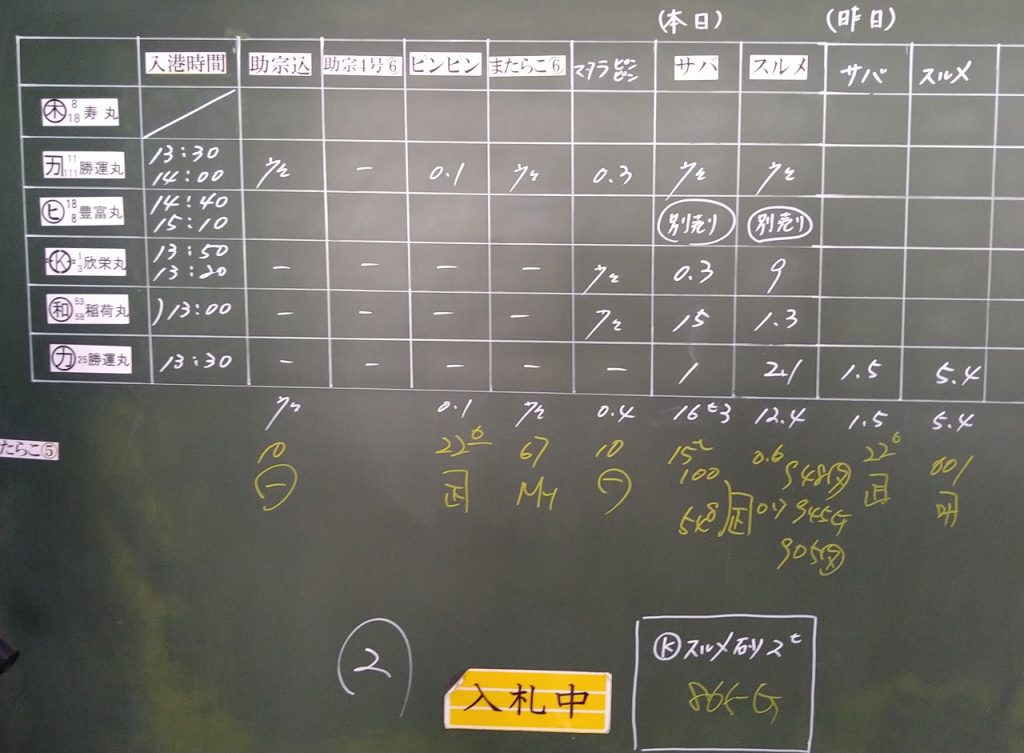 (本日) (昨日)
入港時間 助宗込 助宗4号⑥ ピンピン またらこ⑥ マダラピンピン サバ スルメ サバ スルメ
㊍ 8 18 寿丸
カ 11 111 勝運丸 13:30 14:00 ケ - 0.1 ケ 0.3 ケ ケ
㋪ 18 8 豊富丸 14:40 15:10 別売り 別売り
Ⓚ 1 3 欣栄丸 13:50 13:20 - - - - ケ 0.3 9
和 53 58 稲荷丸 )13:00 - - - - ケ 15 1.3
㋕ 25 勝運丸 13:30 - - - - - 1 2.1 1.5 5.4
ケ 0.1 ケ 0.4 16t3 12.4 1.5 5.4
たらこ⑤
10 22⁶ 67 10 15 0.6 948 22⁶ 601
㊀ 正 MH ㊀ 100 正
548 正 0.7 945G
905
2
入札中
Ⓚ スルメ 砂 2t
865G